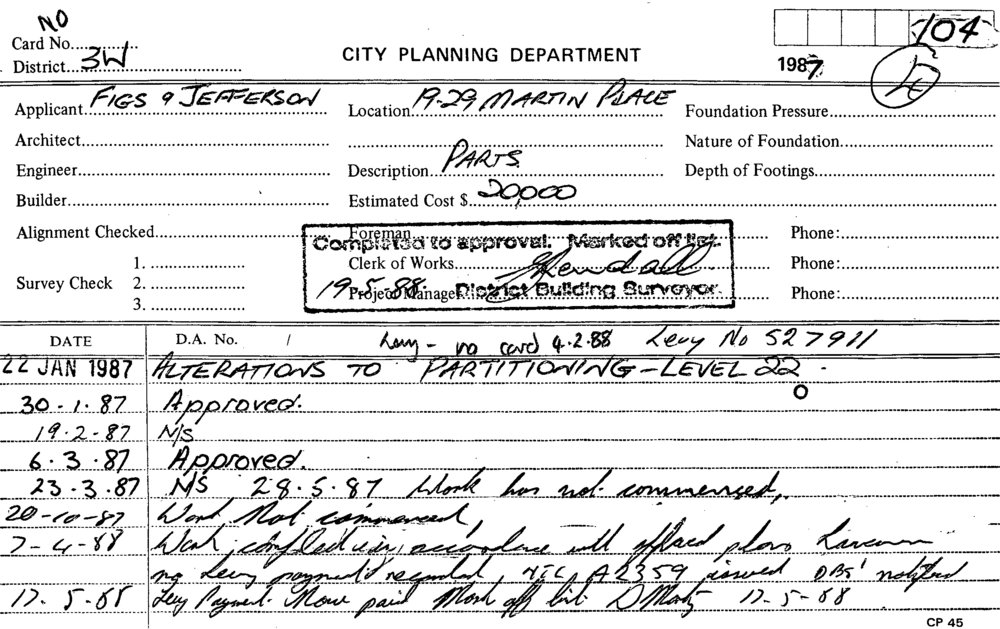 NO
Card No.
District 3W
CITY PLANNING DEPARTMENT
104
1987
Applicant FIGS & JEFFERSON
Location 19-29 MARTIN PLACE
Foundation Pressure
Architect
Nature of Foundation
Engineer
Description PARTS
Depth of Footings
Builder
Estimated Cost $ 20,000
Alignment Checked
Foreman
Phone:
Completed to approval. Marked off list.
Clerk of Works
Phone:
Survey Check
1.
2.
3.
19-5-88. Project Manager
District Building Surveyor.
Phone:
DATE
D.A. No. /
Levy - no card 4.2.88 Levy No 527911
22 JAN 1987 ALTERATIONS TO PARTITIONING - LEVEL 22.
30-1-87 Approved.
19-2-87 N/S
6.3.87 Approved.
23.3.87 N/S 28.5.87 Work has not commenced,
20-10-87 Work Not commenced,
7-4-88 Work completed in accordance with plans
no Levy payment A2359 issued DBS notified
17.5.88 Levy Payment. Now paid Mark off list 17-5-88
CP 45